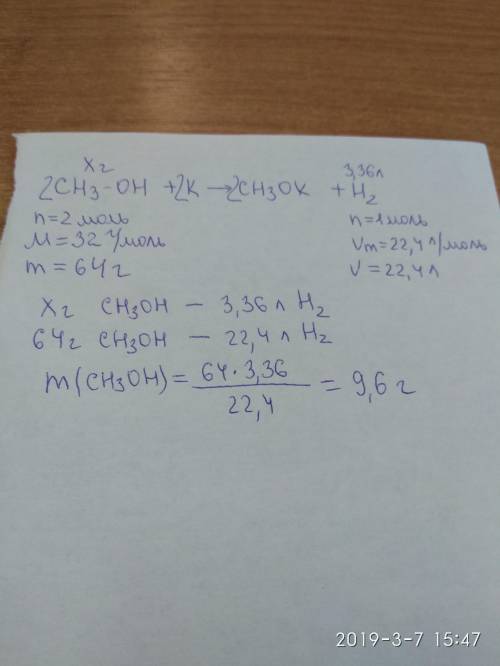 Xг 3,36л
2CH3-OH +2K →2CH3OK + H2
n=2 моль n=1моль
M=32 г/моль Vm=22,4 л/моль
m=64 г V=22,4л
Xг CH3OH — 3,36 л H2
64г CH3OH — 22,4 л H2
m(CH3OH)= 64·3,36 / 22,4 = 9,6 г
2019-3-7 15:47